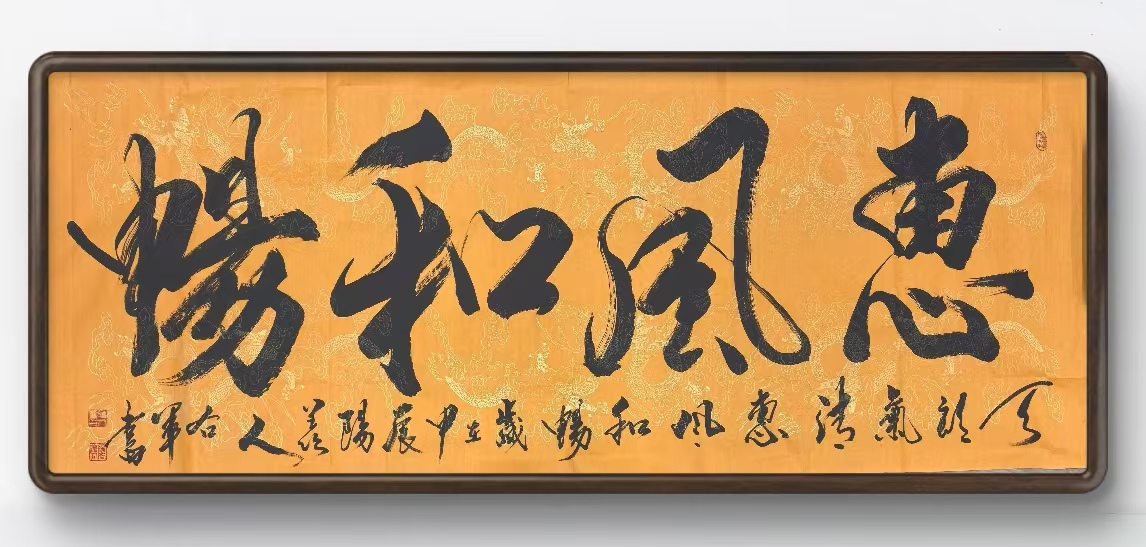 惠風和暢
天朗氣清惠風和暢歲在甲辰陽羨人右軍